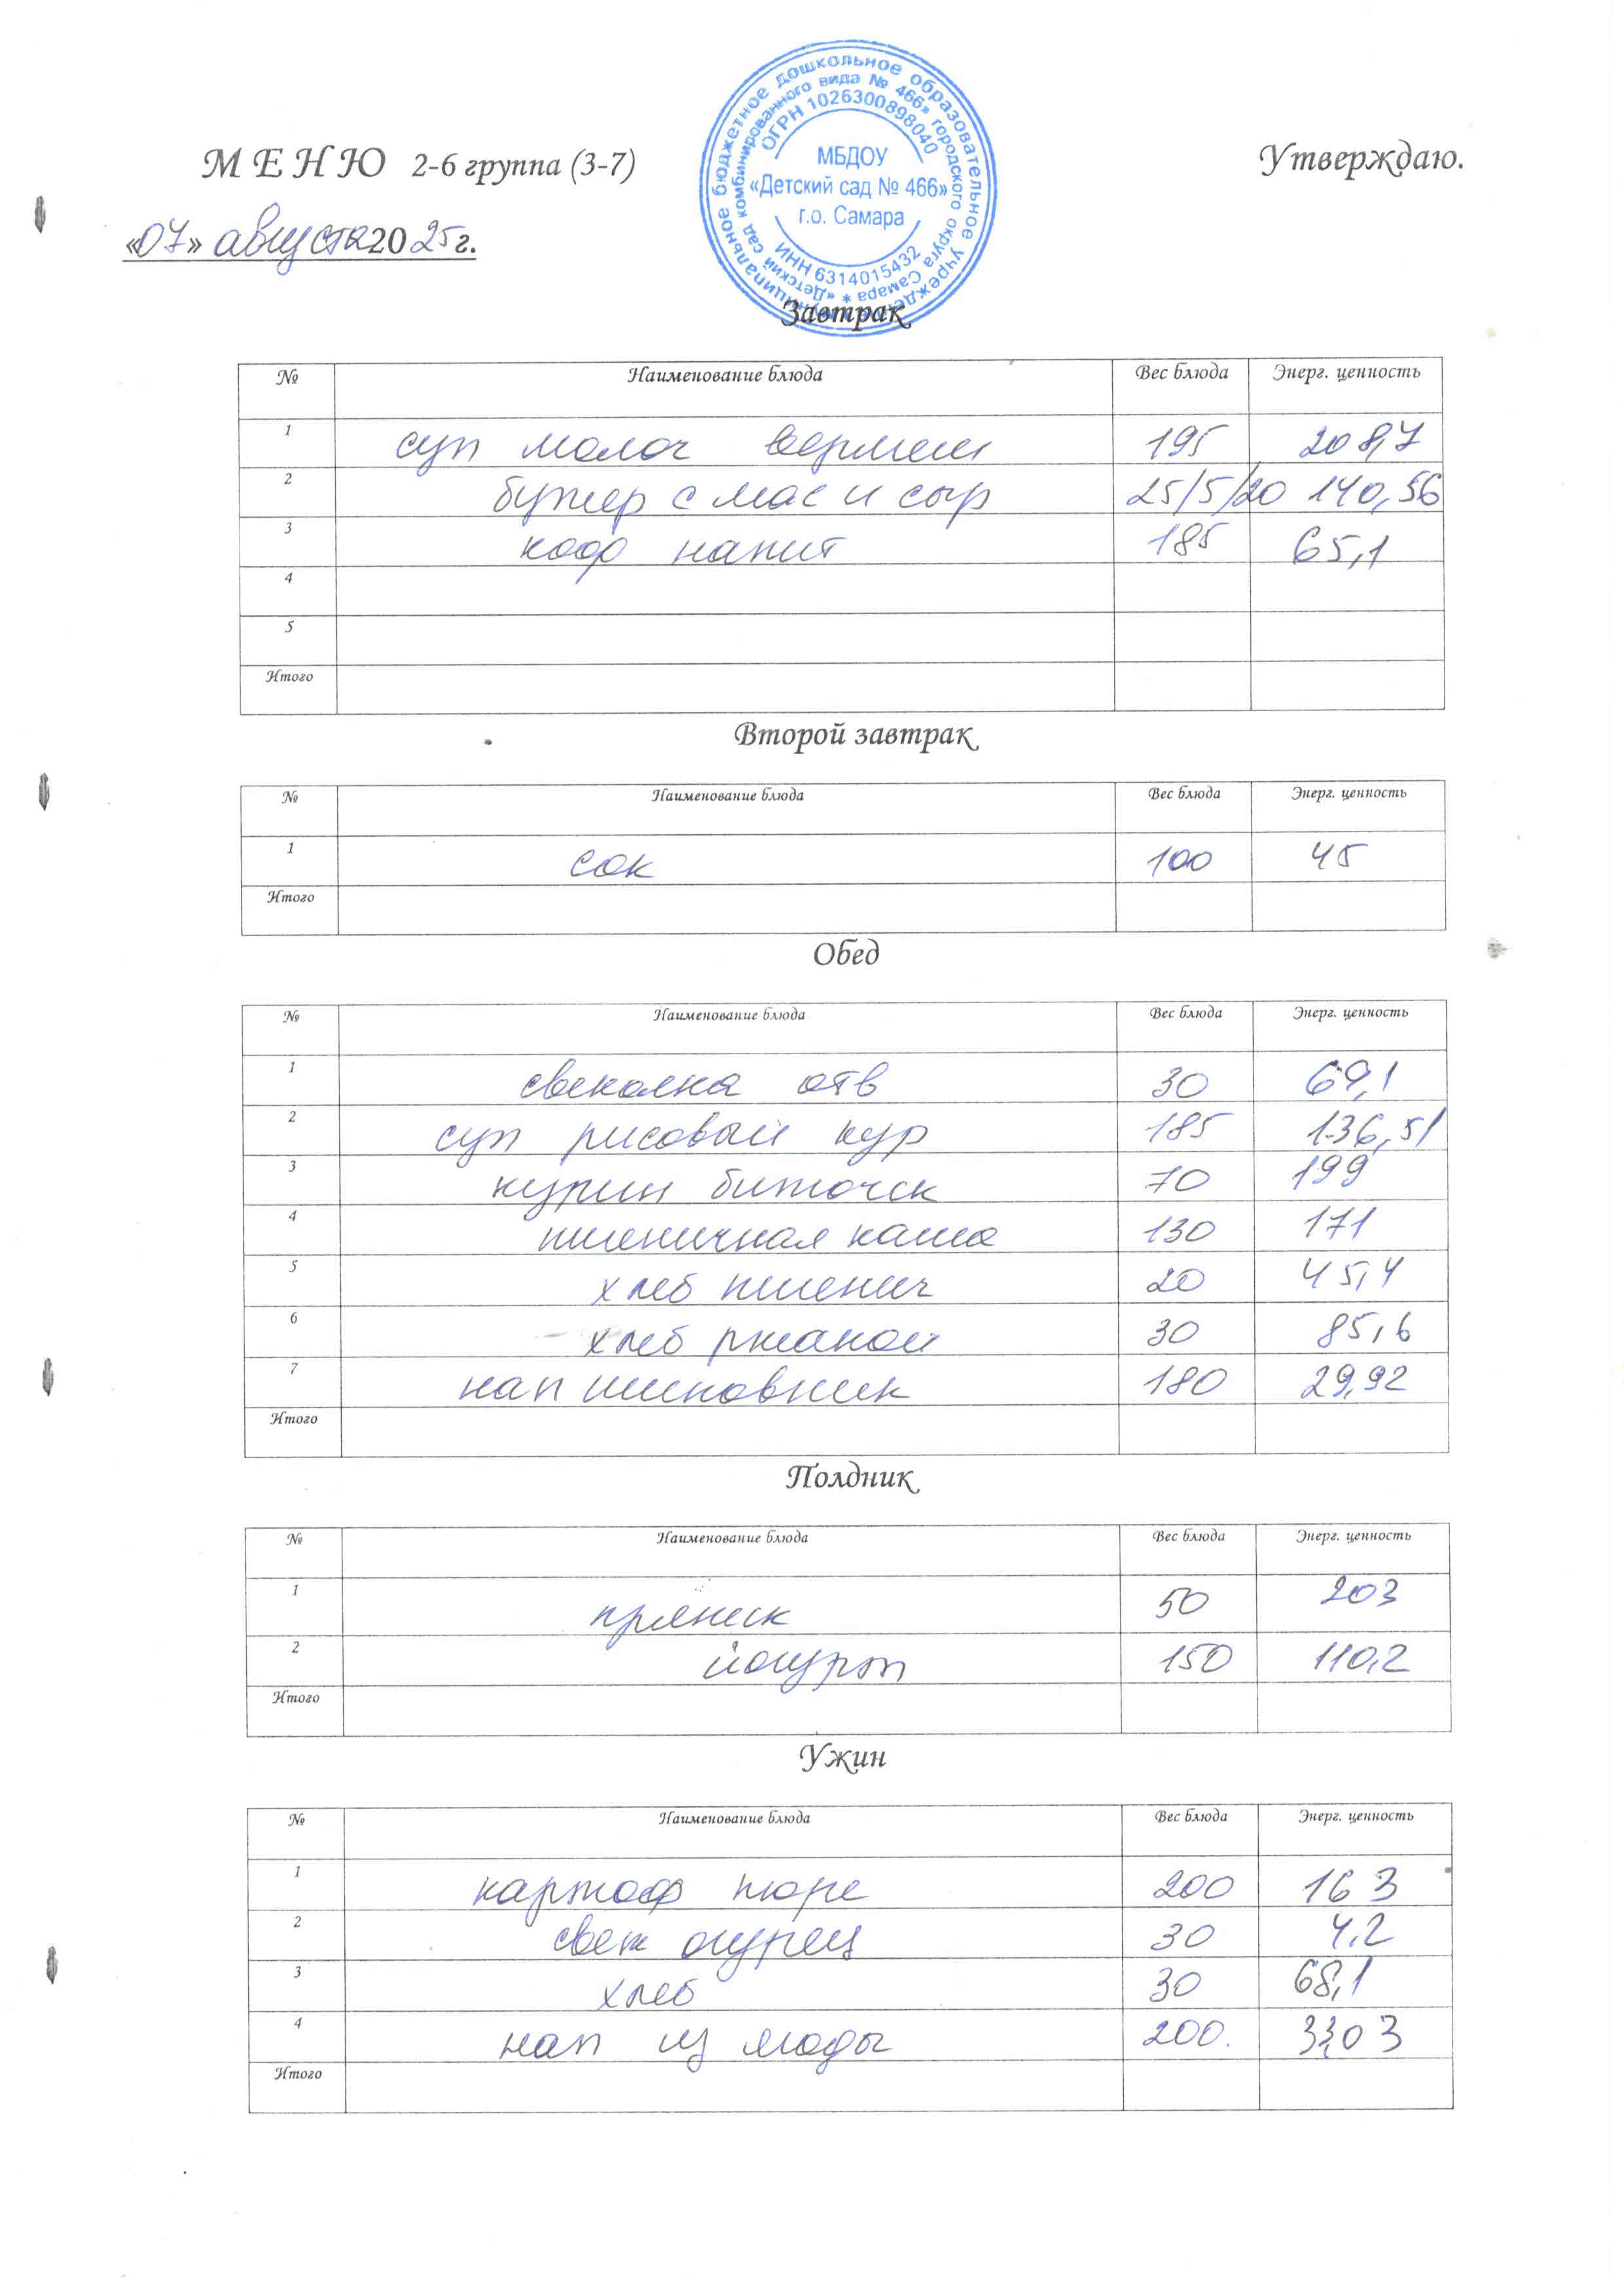 Муниципальное бюджетное дошкольное образовательное учреждение
«Детский сад комбинированного вида № 466» городского округа Самара *
ОГРН 1026300898040
МБДОУ
«Детский сад № 466»
г.о. Самара
ИНН 6314015432
М Е Н Ю 2-6 группа (3-7) Утверждаю.
«07» августа 2025г.
Завтрак
№ Наименование блюда Вес блюда Энерг. ценность
1 суп молоч вермеш 195 208,7
2 бутер с мас и сыр 25/5/20 140,56
3 коф напит 185 65,1
4
5
Итого
Второй завтрак
№ Наименование блюда Вес блюда Энерг. ценность
1 сок 100 45
Итого
Обед
№ Наименование блюда Вес блюда Энерг. ценность
1 свеколка отв 30 69,1
2 суп рисовый кур 185 136,51
3 курин биточек 70 199
4 пшеничная каша 130 171
5 хлеб пшенич 20 45,4
6 хлеб ржаной 30 85,6
7 нап шиповник 180 29,92
Итого
Полдник
№ Наименование блюда Вес блюда Энерг. ценность
1 пряник 50 203
2 йогурт 150 110,2
Итого
Ужин
№ Наименование блюда Вес блюда Энерг. ценность
1 картоф пюре 200 163
2 свеж огурец 30 4,2
3 хлеб 30 68,1
4 нап из ягоды 200.
Итого